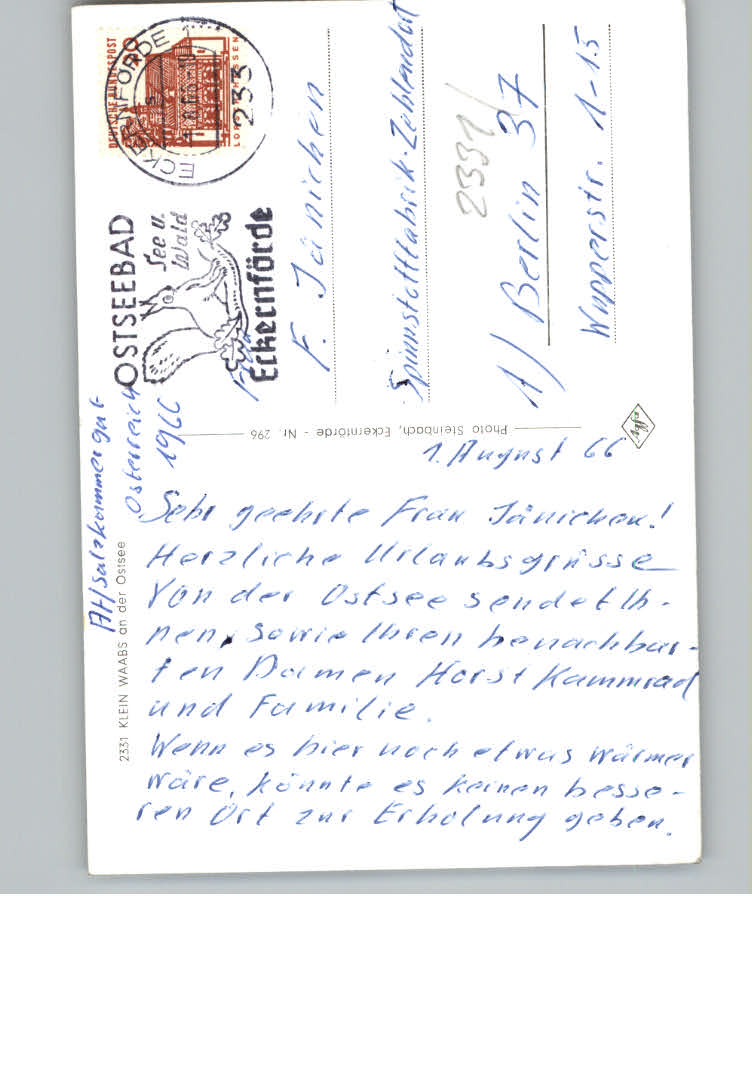 DEUTSCHE BUNDESPOST
20
ECKERNFÖRDE
233
OSTSEEBAD
See u.
Wald
Eckernförde
F. Jänichen
Spinnstoffabrik-Zehlendorf
2331/
1/ Berlin 37
Wupperstr. 1-15
Photo Steinbach, Eckernförde - Nr. 296
2331 KLEIN WAABS an der Ostsee
AH/Salzkammergut
Österreich
1966
1. August 66
Sehr geehrte Frau Jänichen!
Herzliche Urlaubsgrüsse
von der Ostsee sendet Ih-
nen, sowie Ihren benachbar-
ten Damen Horst Kammrad
und Familie.
Wenn es hier noch etwas wärmer
wäre, könnte es keinen besse-
ren Ort zur Erholung geben.